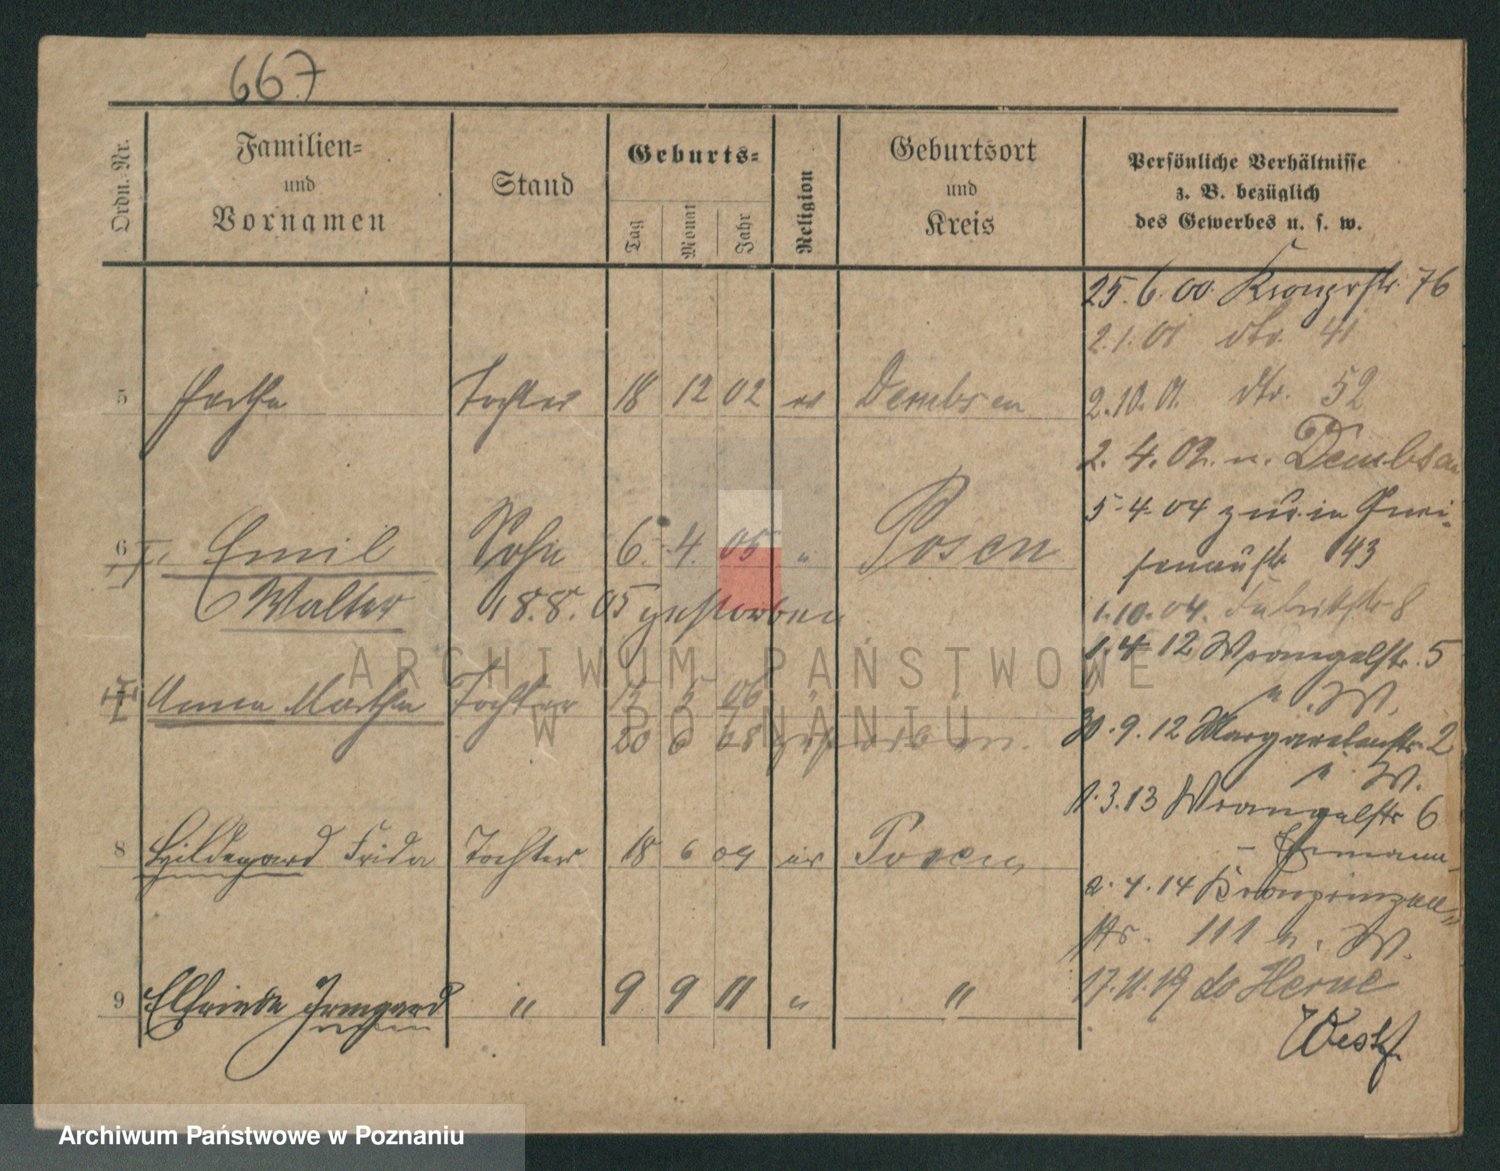 667
Ordn.-Nr.
Familien-
und
Vornamen
Stand
Geburts-
Tag
Monat
Jahr
Religion
Geburtsort
und
Kreis
Persönliche Verhältnisse
z. B. bezüglich
des Gewerbes u. s. w.
25.6.00 76
2.1.01 dto. 41
5 Tochter 18 12 02 Dembsen
2.10.01. dto. 52
2. 4. 02. n. Dembsen
5.4.04 zur. in Gnei-
senaustr. 43
6 Emil Sohn 6. 4. 05 " Posen
Walter 18.8.05 gestorben
1.10.04. Fabrikstr 8
1.4.12 Wrangelstr. 5
n. W.
Anna Martha Tochter 5 06 " "
20 6 08 gestorben.
30.9.12 Margaretenstr. 2
n. W.
1.3.13 Wrangelstr 6
8 Hildegard Frida Tochter 18 6 09 Posen
2.4.14 Kronprinzen-
str. 111 n. W.
9 Elfriede Irmgard " 9 9 11 " "
17.11.19 Herne
Westf.
ARCHIWUM PAŃSTWOWE
W POZNANIU
Archiwum Państwowe w Poznaniu